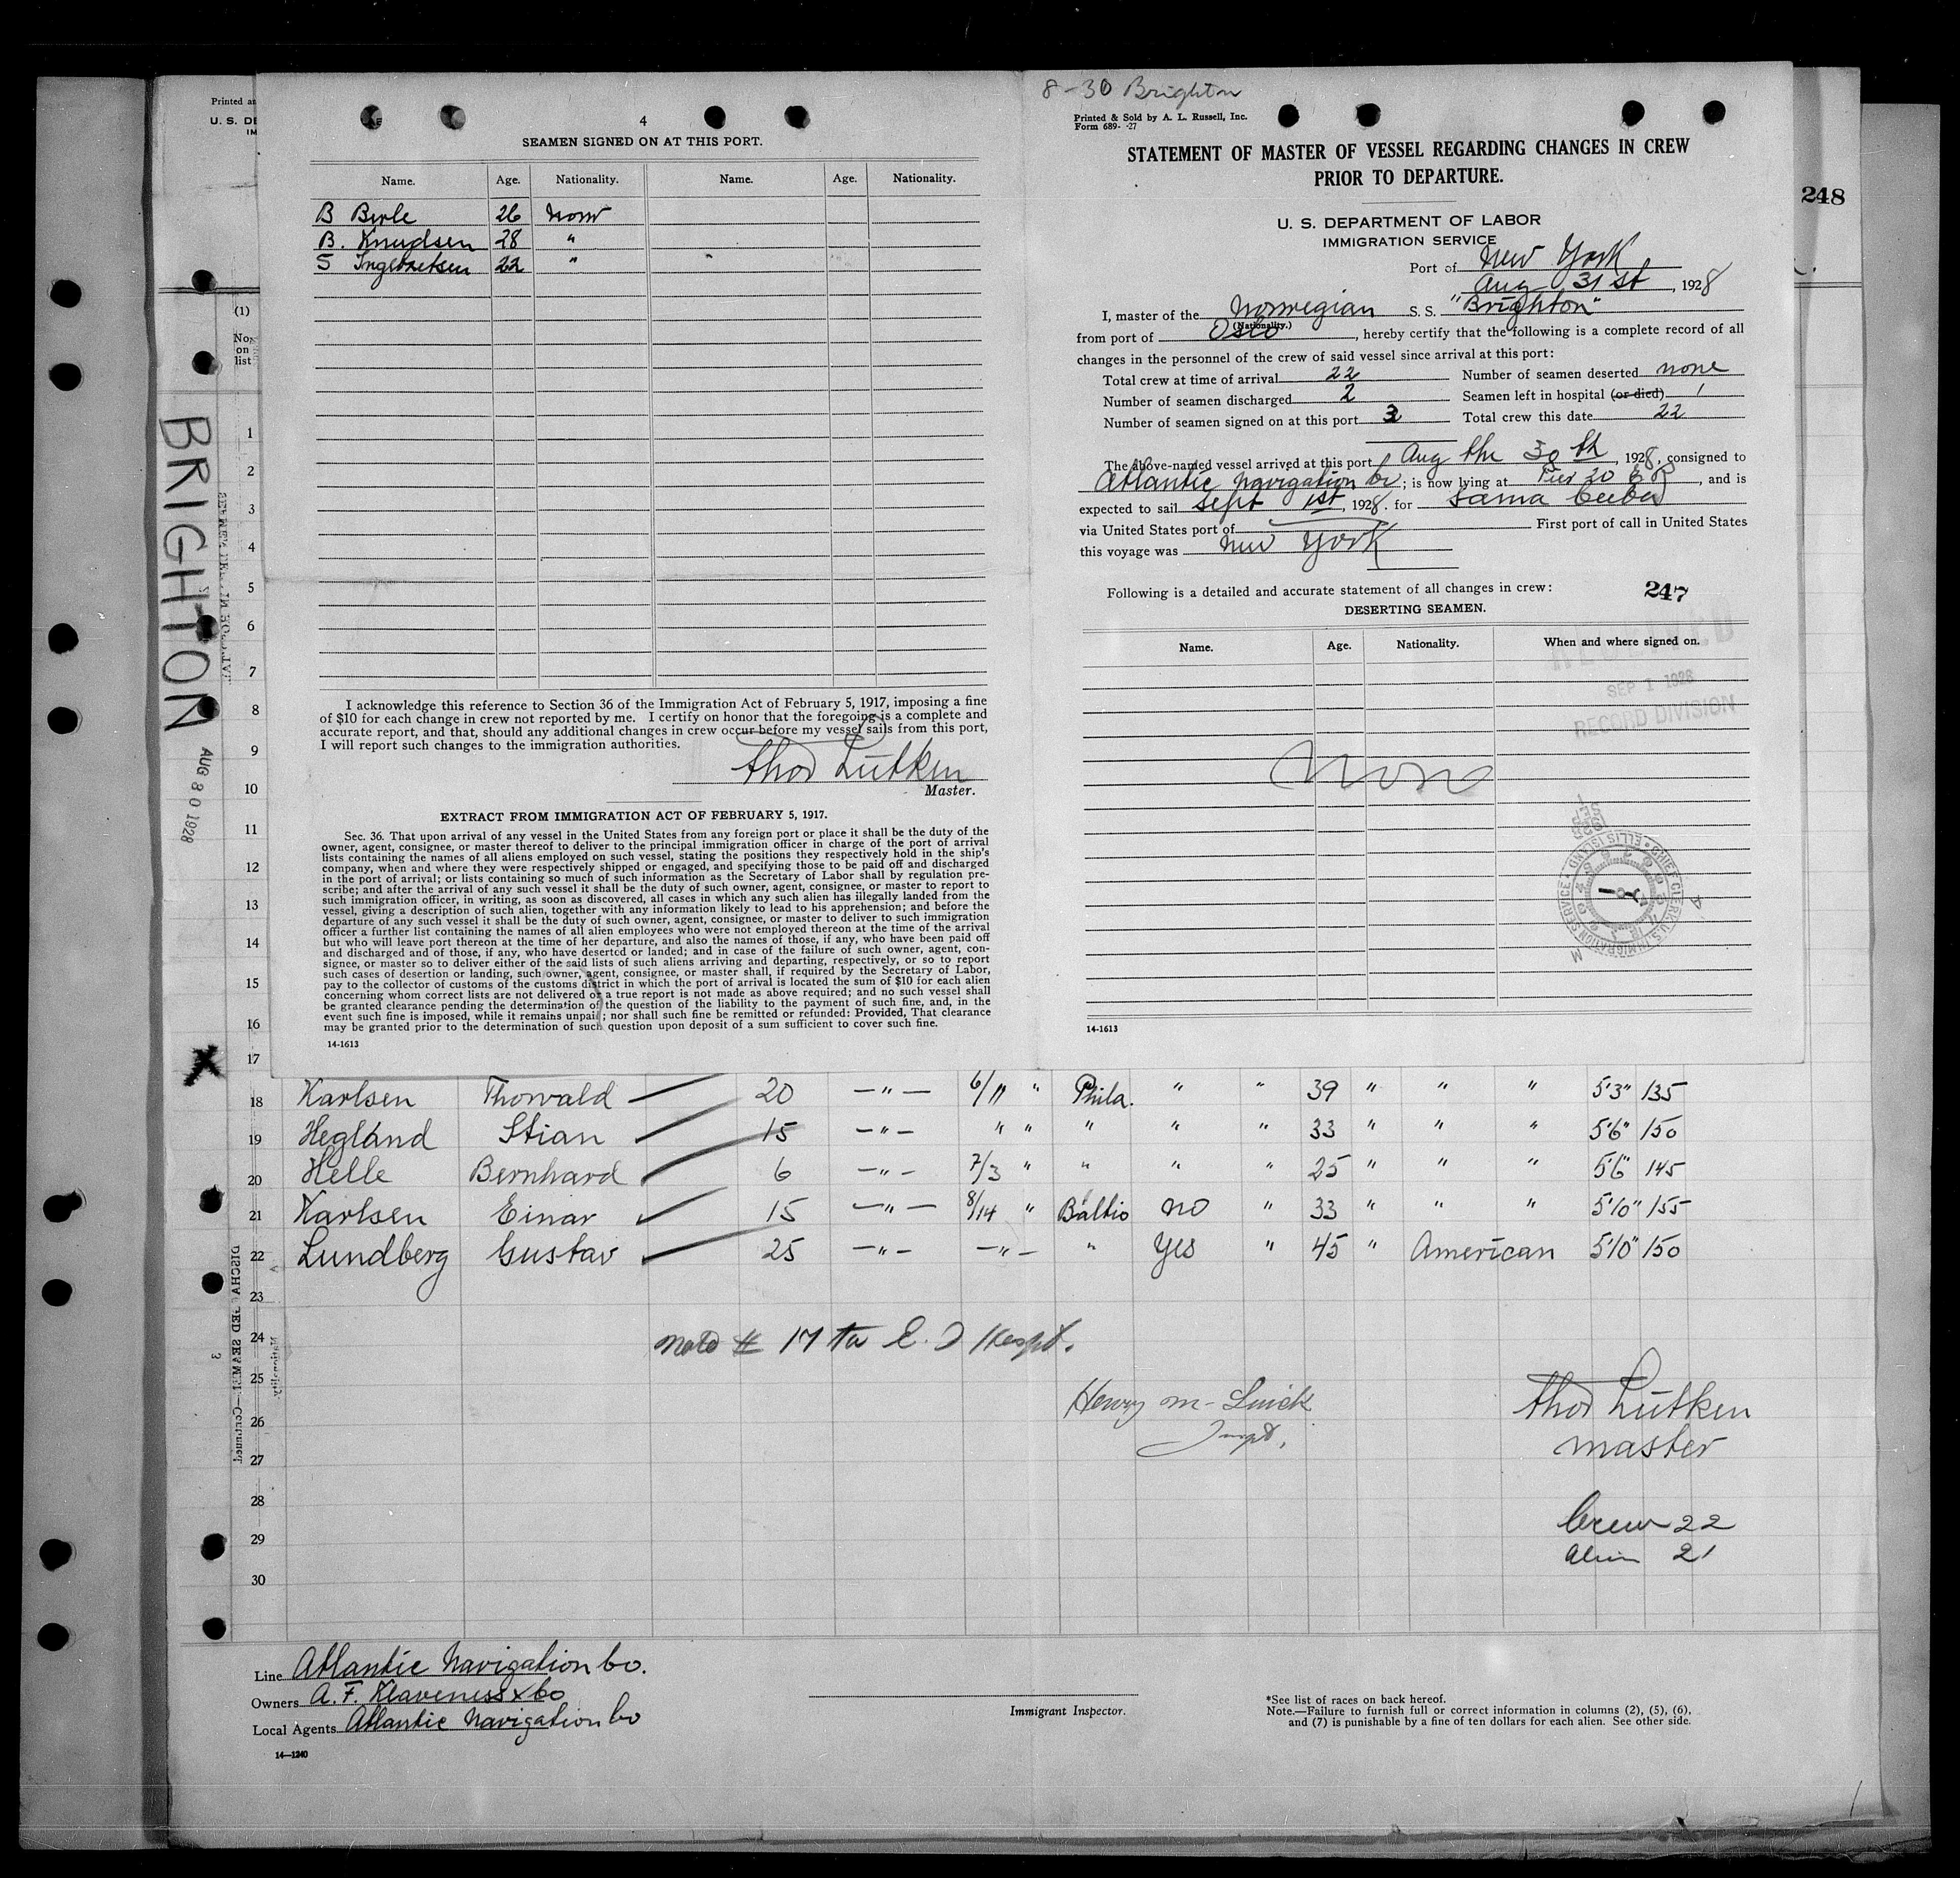 8-30 Brighton
Printed an
U. S. DE
IM
248
4
SEAMEN SIGNED ON AT THIS PORT.
Name. Age. Nationality. Name. Age. Nationality.
B Berle 26 Norw
B. Knudsen 28 "
S Ingebretsen 22 "
I acknowledge this reference to Section 36 of the Immigration Act of February 5, 1917, imposing a fine
of $10 for each change in crew not reported by me. I certify on honor that the foregoing is a complete and
accurate report, and that, should any additional changes in crew occur before my vessel sails from this port,
I will report such changes to the immigration authorities.
Thos Lütken
Master.
EXTRACT FROM IMMIGRATION ACT OF FEBRUARY 5, 1917.
Sec. 36. That upon arrival of any vessel in the United States from any foreign port or place it shall be the duty of the
owner, agent, consignee, or master thereof to deliver to the principal immigration officer in charge of the port of arrival
lists containing the names of all aliens employed on such vessel, stating the positions they respectively hold in the ship's
company, when and where they were respectively shipped or engaged, and specifying those to be paid off and discharged
in the port of arrival; or lists containing so much of such information as the Secretary of Labor shall by regulation pre-
scribe; and after the arrival of any such vessel it shall be the duty of such owner, agent, consignee, or master to report to
such immigration officer, in writing, as soon as discovered, all cases in which any such alien has illegally landed from the
vessel, giving a description of such alien, together with any information likely to lead to his apprehension; and before the
departure of any such vessel it shall be the duty of such owner, agent, consignee, or master to deliver to such immigration
officer a further list containing the names of all alien employees who were not employed thereon at the time of the arrival
but who will leave port thereon at the time of her departure, and also the names of those, if any, who have been paid off
and discharged and of those, if any, who have deserted or landed; and in case of the failure of such owner, agent, con-
signee, or master so to deliver either of the said lists of such aliens arriving and departing, respectively, or so to report
such cases of desertion or landing, such owner, agent, consignee, or master shall, if required by the Secretary of Labor,
pay to the collector of customs of the customs district in which the port of arrival is located the sum of $10 for each alien
concerning whom correct lists are not delivered or a true report is not made as above required; and no such vessel shall
be granted clearance pending the determination of the question of the liability to the payment of such fine, and, in the
event such fine is imposed, while it remains unpaid; nor shall such fine be remitted or refunded: Provided, That clearance
may be granted prior to the determination of such question upon deposit of a sum sufficient to cover such fine.
14-1613
Printed & Sold by A. L. Russell, Inc.
Form 689- -27
STATEMENT OF MASTER OF VESSEL REGARDING CHANGES IN CREW
PRIOR TO DEPARTURE.
U. S. DEPARTMENT OF LABOR
IMMIGRATION SERVICE
Port of New York
Aug 31st, 1928
I, master of the Norwegian S. S. "Brighton"
(Nationality.)
from port of Oslo, hereby certify that the following is a complete record of all
changes in the personnel of the crew of said vessel since arrival at this port:
Total crew at time of arrival 22 Number of seamen deserted none
Number of seamen discharged 2 Seamen left in hospital (or died) 1
Number of seamen signed on at this port 3 Total crew this date 22
The above-named vessel arrived at this port Aug the 30th, 1928, consigned to
Atlantic Navigation Co; is now lying at Pier 20 E R, and is
expected to sail Sept 1st, 1928. for Tarma Cuba
via United States port of First port of call in United States
this voyage was New York
Following is a detailed and accurate statement of all changes in crew: 247
DESERTING SEAMEN.
Name. Age. Nationality. When and where signed on.
SEP 1 1928
RECORD DIVISION
None
CHIEF CLERK U.S. IMMIGRATION SERVICE ELLIS ISLAND
14-1613
(1)
No.
on
list
BRIGHTON
AUG 30 1928
1
2
3
4
5
6
7
8
9
10
11
12
13
14
15
16
17
18 Karlsen Thorvald 20 —"— 6/11 " Phila. " " 39 " " " 5'3" 135
19 Hegland Stian 15 —"— " " " " " 33 " " " 5'6" 150
20 Helle Bernhard 6 —"— 7/3 " " " " 25 " " " 5'6" 145
21 Karlsen Einar 15 —"— 8/14 " Baltio no " 33 " " " 5'10" 155
22 Lundberg Gustav 25 —"— —"— " Yes " 45 " American 5'10" 150
23
24
25
26
27
28
29
30
Note # 17 to E. I Hospt.
Henry M-
Inspt.
Thos Lütken
master
Crew 22
Alien 21
DISCHARGED SEAMEN—Continued.
3
Nationality.
Line Atlantic Navigation Co.
Owners A. F. Klaveness & Co
Local Agents Atlantic Navigation Co
14—1240
Immigrant Inspector.
*See list of races on back hereof.
Note.—Failure to furnish full or correct information in columns (2), (5), (6),
and (7) is punishable by a fine of ten dollars for each alien. See other side.